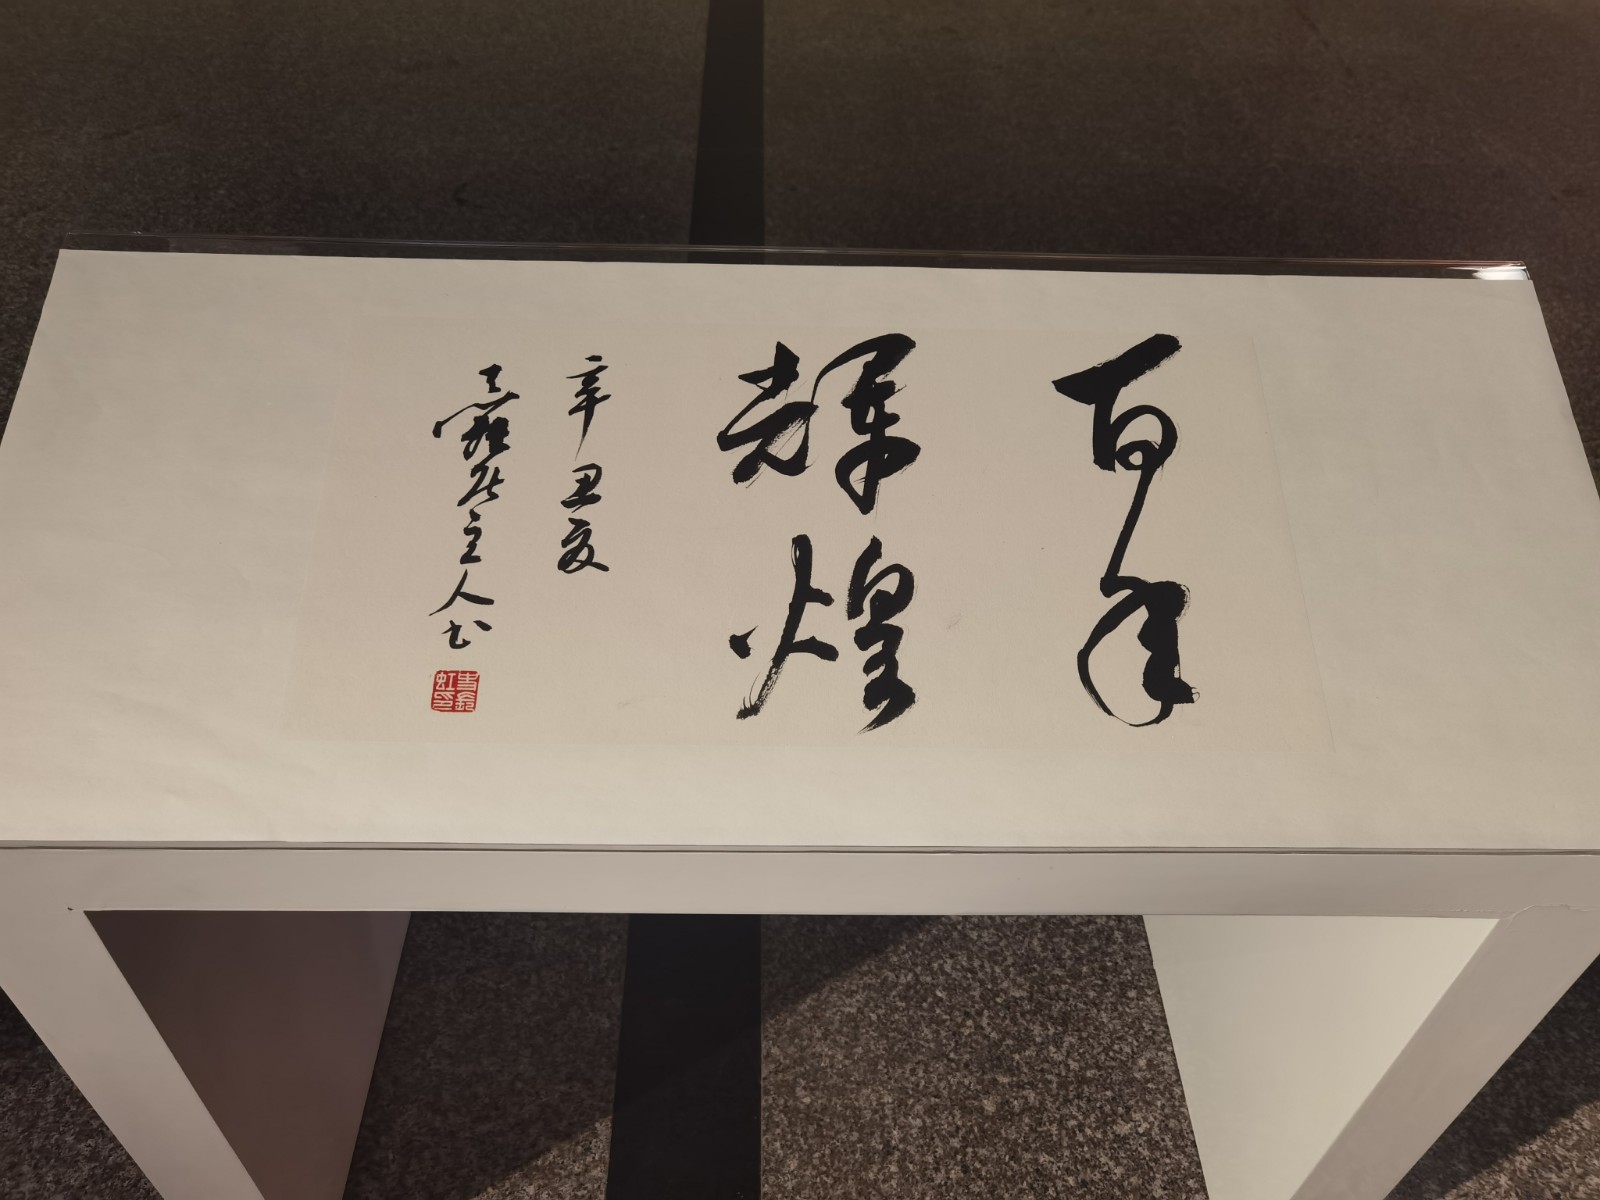 百年
輝煌
辛丑夏
主人书